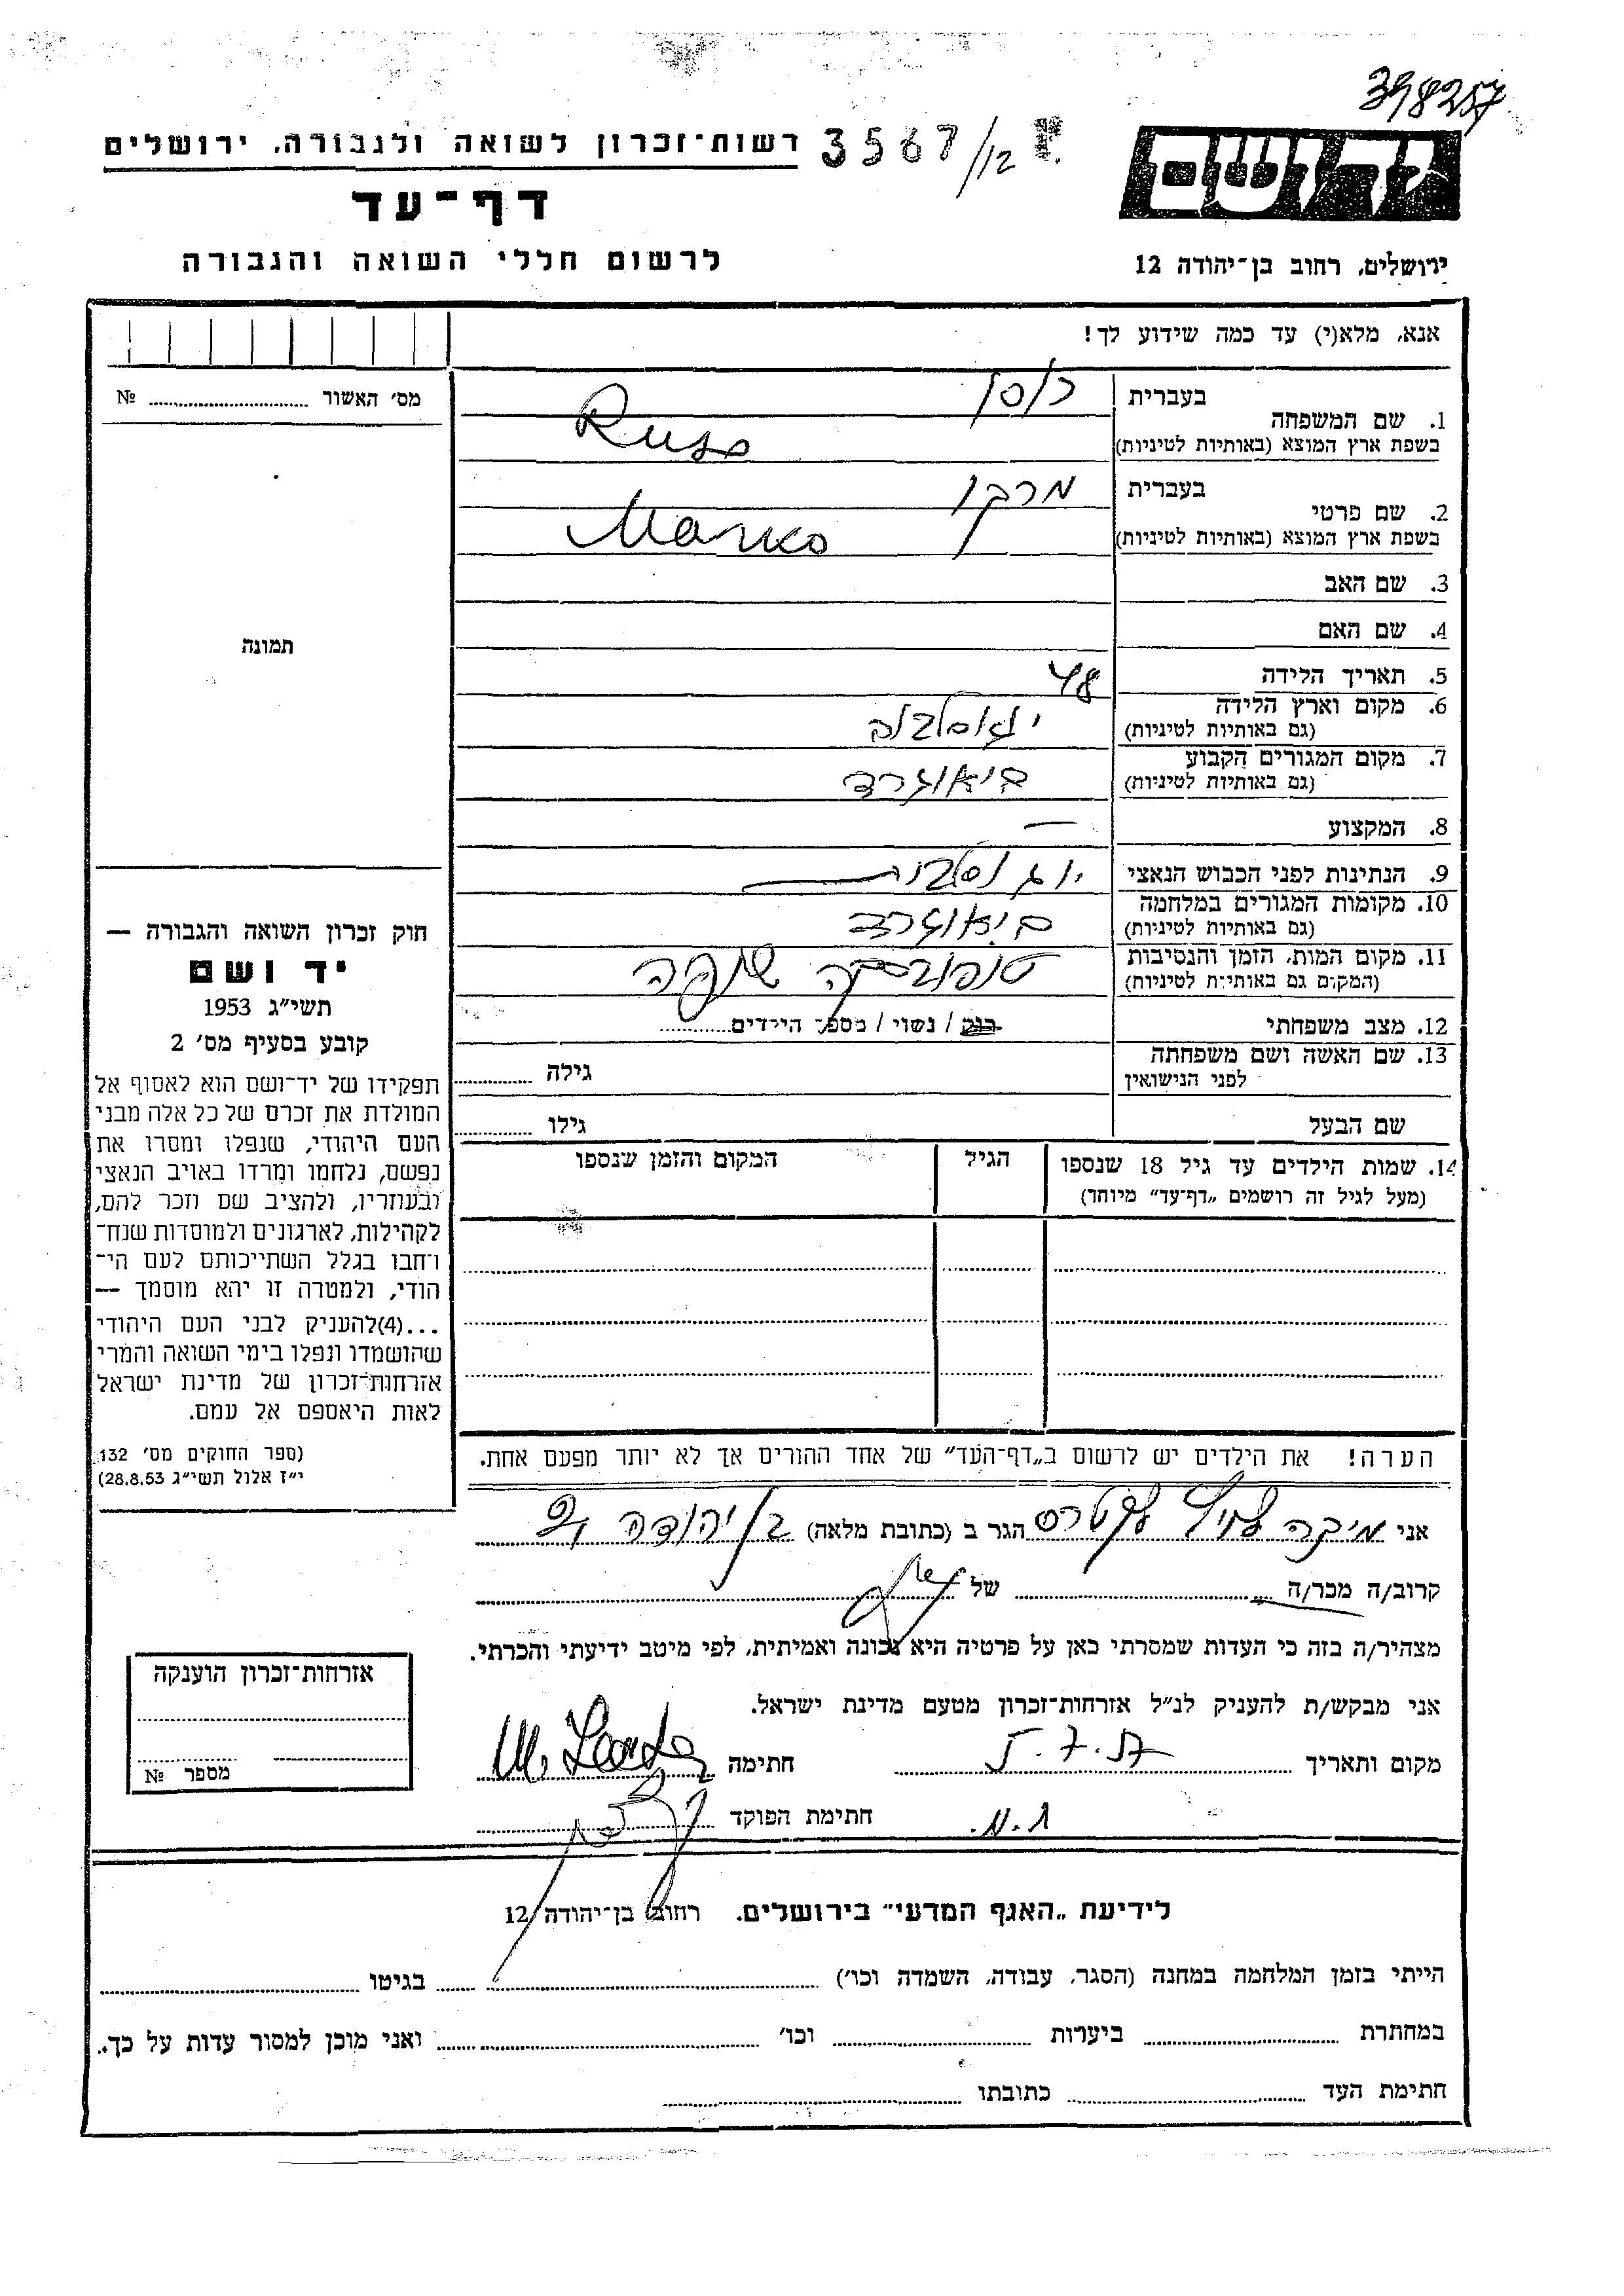 398257
רשות־זכרון לשואה ולגבורה, ירושלים
3567/12
יד ושם
דף־עד
לרשום חללי השואה והגבורה
ירושלים, רחוב בן־יהודה 12
אנא, מלא(י) עד כמה שידוע לך!
מס׳ האשור № 
1. שם המשפחה
בעברית
רוסו
בשפת ארץ המוצא (באותיות לטיניות)
Russo
2. שם פרטי
בעברית
מרקו
בשפת ארץ המוצא (באותיות לטיניות)
Marko
תמונה
3. שם האב
4. שם האם
5. תאריך הלידה
48
6. מקום וארץ הלידה
(גם באותיות לטיניות)
7. מקום המגורים הקבוע
(גם באותיות לטיניות)
ביאוגרד
8. המקצוע —
9. הנתינות לפני הכבוש הנאצי
10. מקומות המגורים במלחמה
(גם באותיות לטיניות)
ביאוגרד
11. מקום המות, הזמן והנסיבות
(המקום גם באותיות לטיניות)
טופובסקה שופה
12. מצב משפחתי
רוק / נשוי / מספר הילדים
13. שם האשה ושם משפחתה
לפני הנישואין
גילה
שם הבעל
גילו
14. שמות הילדים עד גיל 18 שנספו
(מעל לגיל זה רושמים „דף־עד״ מיוחד)
הגיל
המקום והזמן שנספו
חוק זכרון השואה והגבורה —
יד ושם
תשי״ג 1953
קובע בסעיף מס׳ 2
תפקידו של יד־ושם הוא לאסוף אל
המולדת את זכרם של כל אלה מבני
העם היהודי, שנפלו ומסרו את
נפשם, נלחמו ומרדו באויב הנאצי
ובעוזריו, ולהציב שם וזכר להם,
לקהילות, לארגונים ולמוסדות שנח־
רבו בגלל השתייכותם לעם הי־
הודי, ולמטרה זו יהא מוסמך —
...(4)להעניק לבני העם היהודי
שהושמדו ונפלו בימי השואה והמרי
אזרחות־זכרון של מדינת ישראל
לאות היאספם אל עמם.
(ספר החוקים מס׳ 132,
י״ז אלול תשי״ג 28.8.53)
הערה! את הילדים יש לרשום ב„דף־העד״ של אחד ההורים אך לא יותר מפעם אחת.
אני מיקה הגר ב (כתובת מלאה) בן יהודה
קרוב/ה מכר/ה של
מצהיר/ה בזה כי העדות שמסרתי כאן על פרטיה היא נכונה ואמיתית, לפי מיטב ידיעתי והכרתי.
אני מבקש/ת להעניק לנ״ל אזרחות־זכרון מטעם מדינת ישראל.
מקום ותאריך 5.7.57 חתימה
חתימת הפוקד
אזרחות־זכרון הוענקה
מספר №
לידיעת „האגף המדעי״ בירושלים. רחוב בן־יהודה 12
הייתי בזמן המלחמה במחנה (הסגר, עבודה, השמדה וכו׳) בגיטו
במחתרת ביערות וכו׳ ואני מוכן למסור עדות על כך.
חתימת העד כתובתו